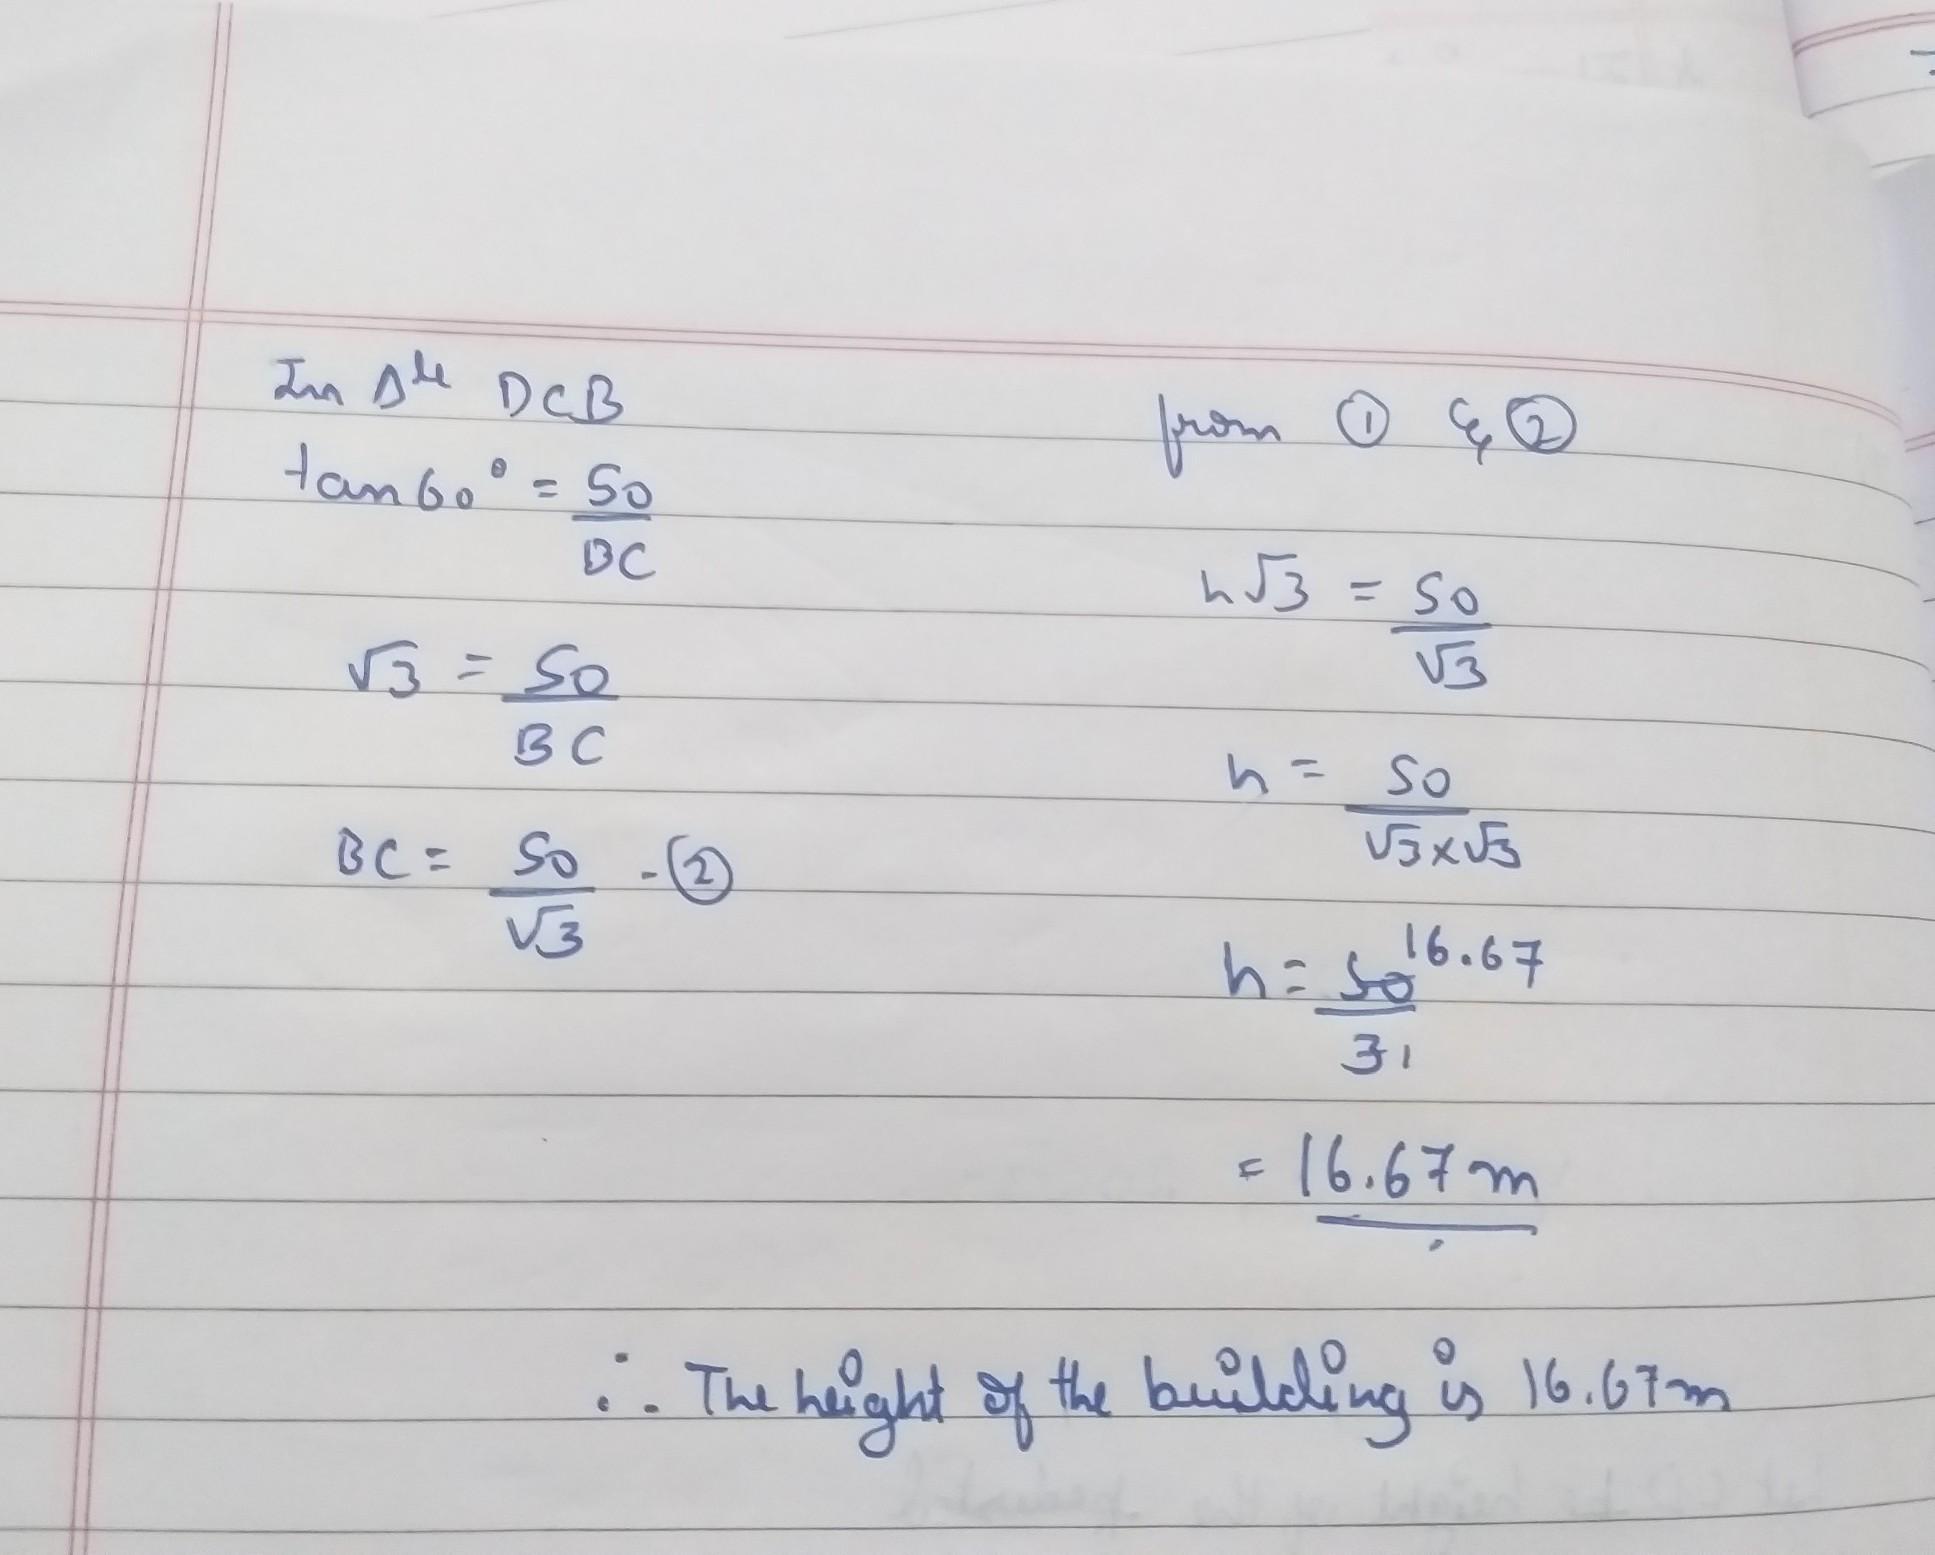 In Δle DCB
tan60° = 50
BC
√3 = 50
BC
BC = 50 - ②
√3
from ① & ②
h√3 = 50
√3
h = 50
√3×√3
h = 50 16.67
3 1
= 16.67 m
∴ The height of the building is 16.67m